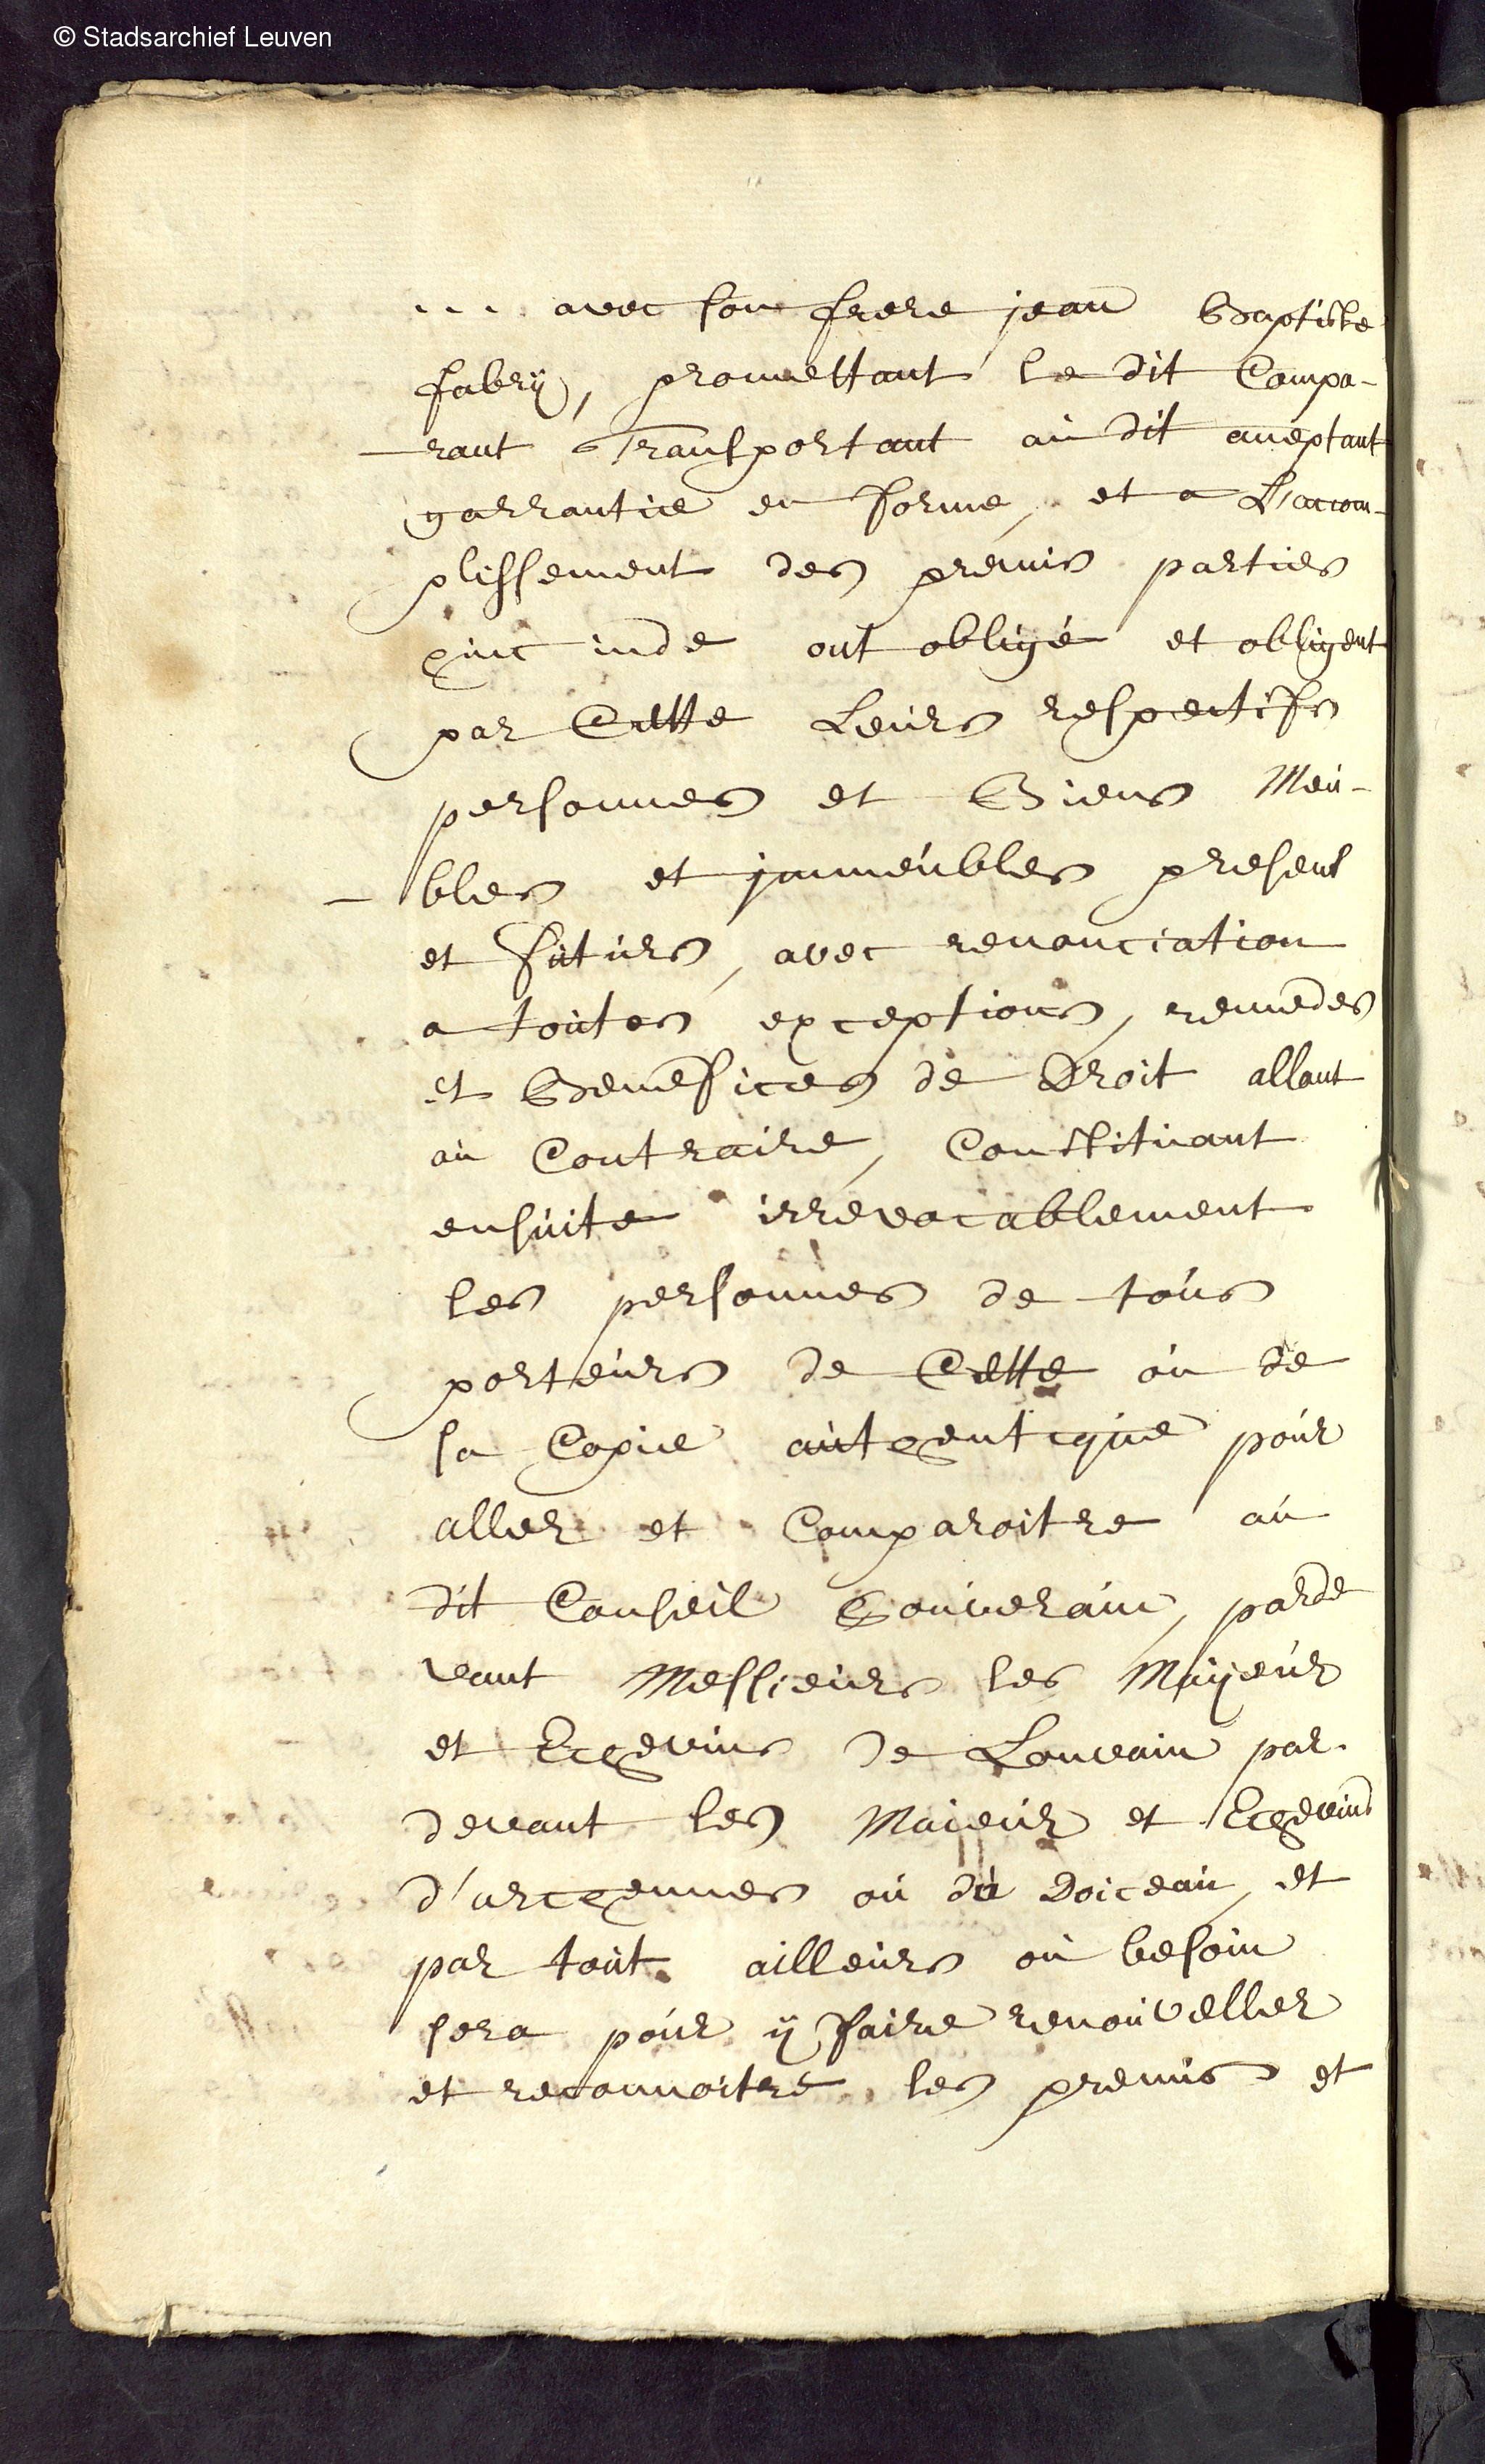 © Stadsarchief Leuven
... avec son frere jean Baptiste
fabrÿ, promettant le dit Compa-
rant Transportant au dit acceptant
garrantie en forme, et a L'accom-
plissement des premis parties
hinc inde ont obligé et obligent
par Cette Leurs respectifs
personnes et Biens Meu-
bles et immeubles present
et futurs, avec renonciation
a toutes exceptions, remedes
et Benefices de Droit allant
au Contraire, Constituant
ensuite irrevocablement
les personnes de tous
porteurs de Cette ou de
sa Copie autenticque pour
aller et Comparoitre au
dit Conseil Souverain, parde
vant Messieurs les Mayeur
et Echevins de Louvain par
devant les Maieur et Echevins
d'archennes ou du Doiceau, et
par tout ailleurs ou besoin
sera pour ÿ faire renouveller
et reconnoitre les premis et